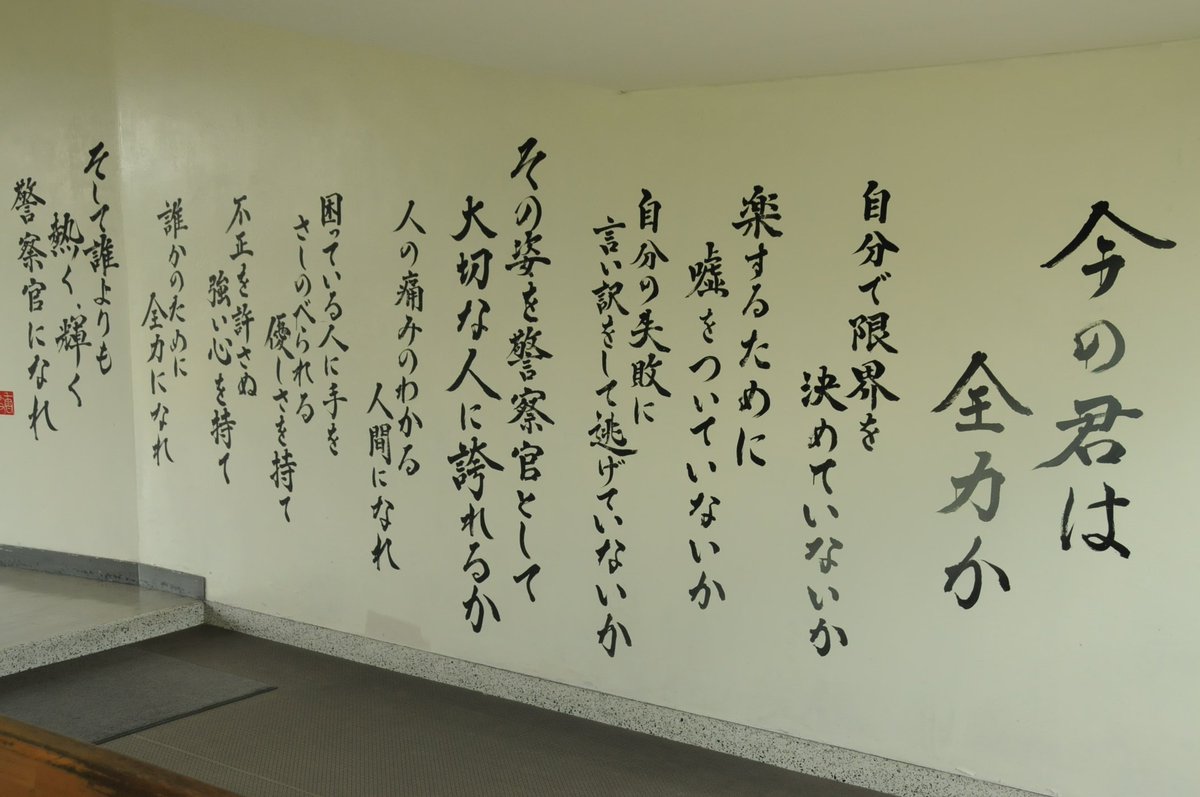 今の君は
全力か
自分で限界を
決めていないか
楽するために
嘘をついていないか
自分の失敗に
言い訳をして逃げていないか
その姿を警察官として
大切な人に誇れるか
人の痛みのわかる
人間になれ
困っている人に手を
さしのべられる
優しさを持て
不正を許さぬ
強い心を持て
誰かのために
全力になれ
そして誰よりも
熱く、輝く
警察官になれ